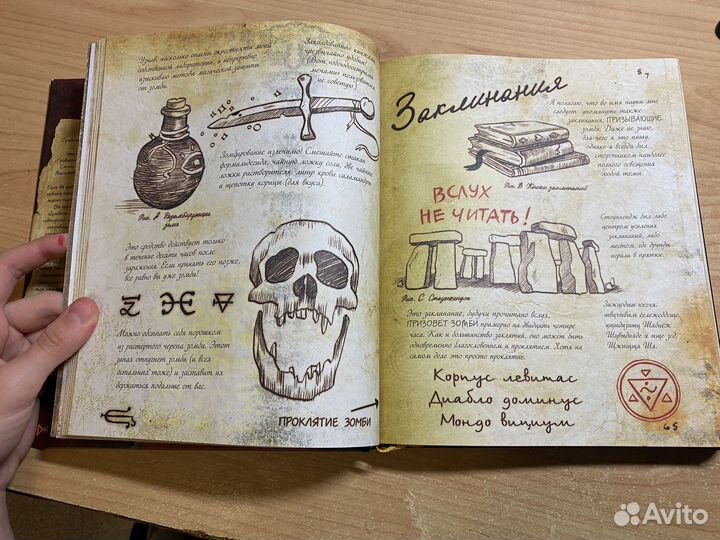 Узнав, насколько опасны окрестности моей
собственной лаборатории, я непрерывно
изыскиваю методы магической защиты
от зомби.
Заколдованные кинжалы
чрезвычайно удобны!
пользоваться
не советую)
Зомбирование излечимо! Смешайте стакан
формальдегида, чайную ложку соли, две чайные
ложки растворителя, литр крови саламандры
и щепотку корицы (для вкуса).
Рис. A
зелье
Это средство действует только
в течение десяти часов после
заражения. Если принять его позже,
все равно вы уже зомби!
Можно обсыпать себя порошком
из растертого черепа зомби. Этот
запах отпугнет зомби (и всех
остальных тоже) и заставит их
держаться подальше от вас.
ПРОКЛЯТИЕ ЗОМБИ
Заклинания
Я полагаю, что во имя науки мне
следует упомянуть также
заклинания, ПРИЗЫВАЮЩИЕ
зомби. Даже не знаю,
для чего я это пишу,
однако я всегда был
сторонником наиболее
полного освещения
любой темы.
Рис. B Книги заклинаний
ВСЛУХ
НЕ ЧИТАТЬ!
Стоунхендж был либо
центром усиления
заклинаний, либо
местом, где друиды
играли в прятки.
Рис. C Стоунхендж
Это заклинание, будучи прочитано вслух,
ПРИЗОВЕТ ЗОМБИ примерно на двадцать четыре
часа. Как и большинство заклятий, оно может быть
одновременно благословением и проклятием. Хотя на
самом деле это просто проклятие.
Корпус левитас
Диабло доминус
Мондо вициум
65
Avito